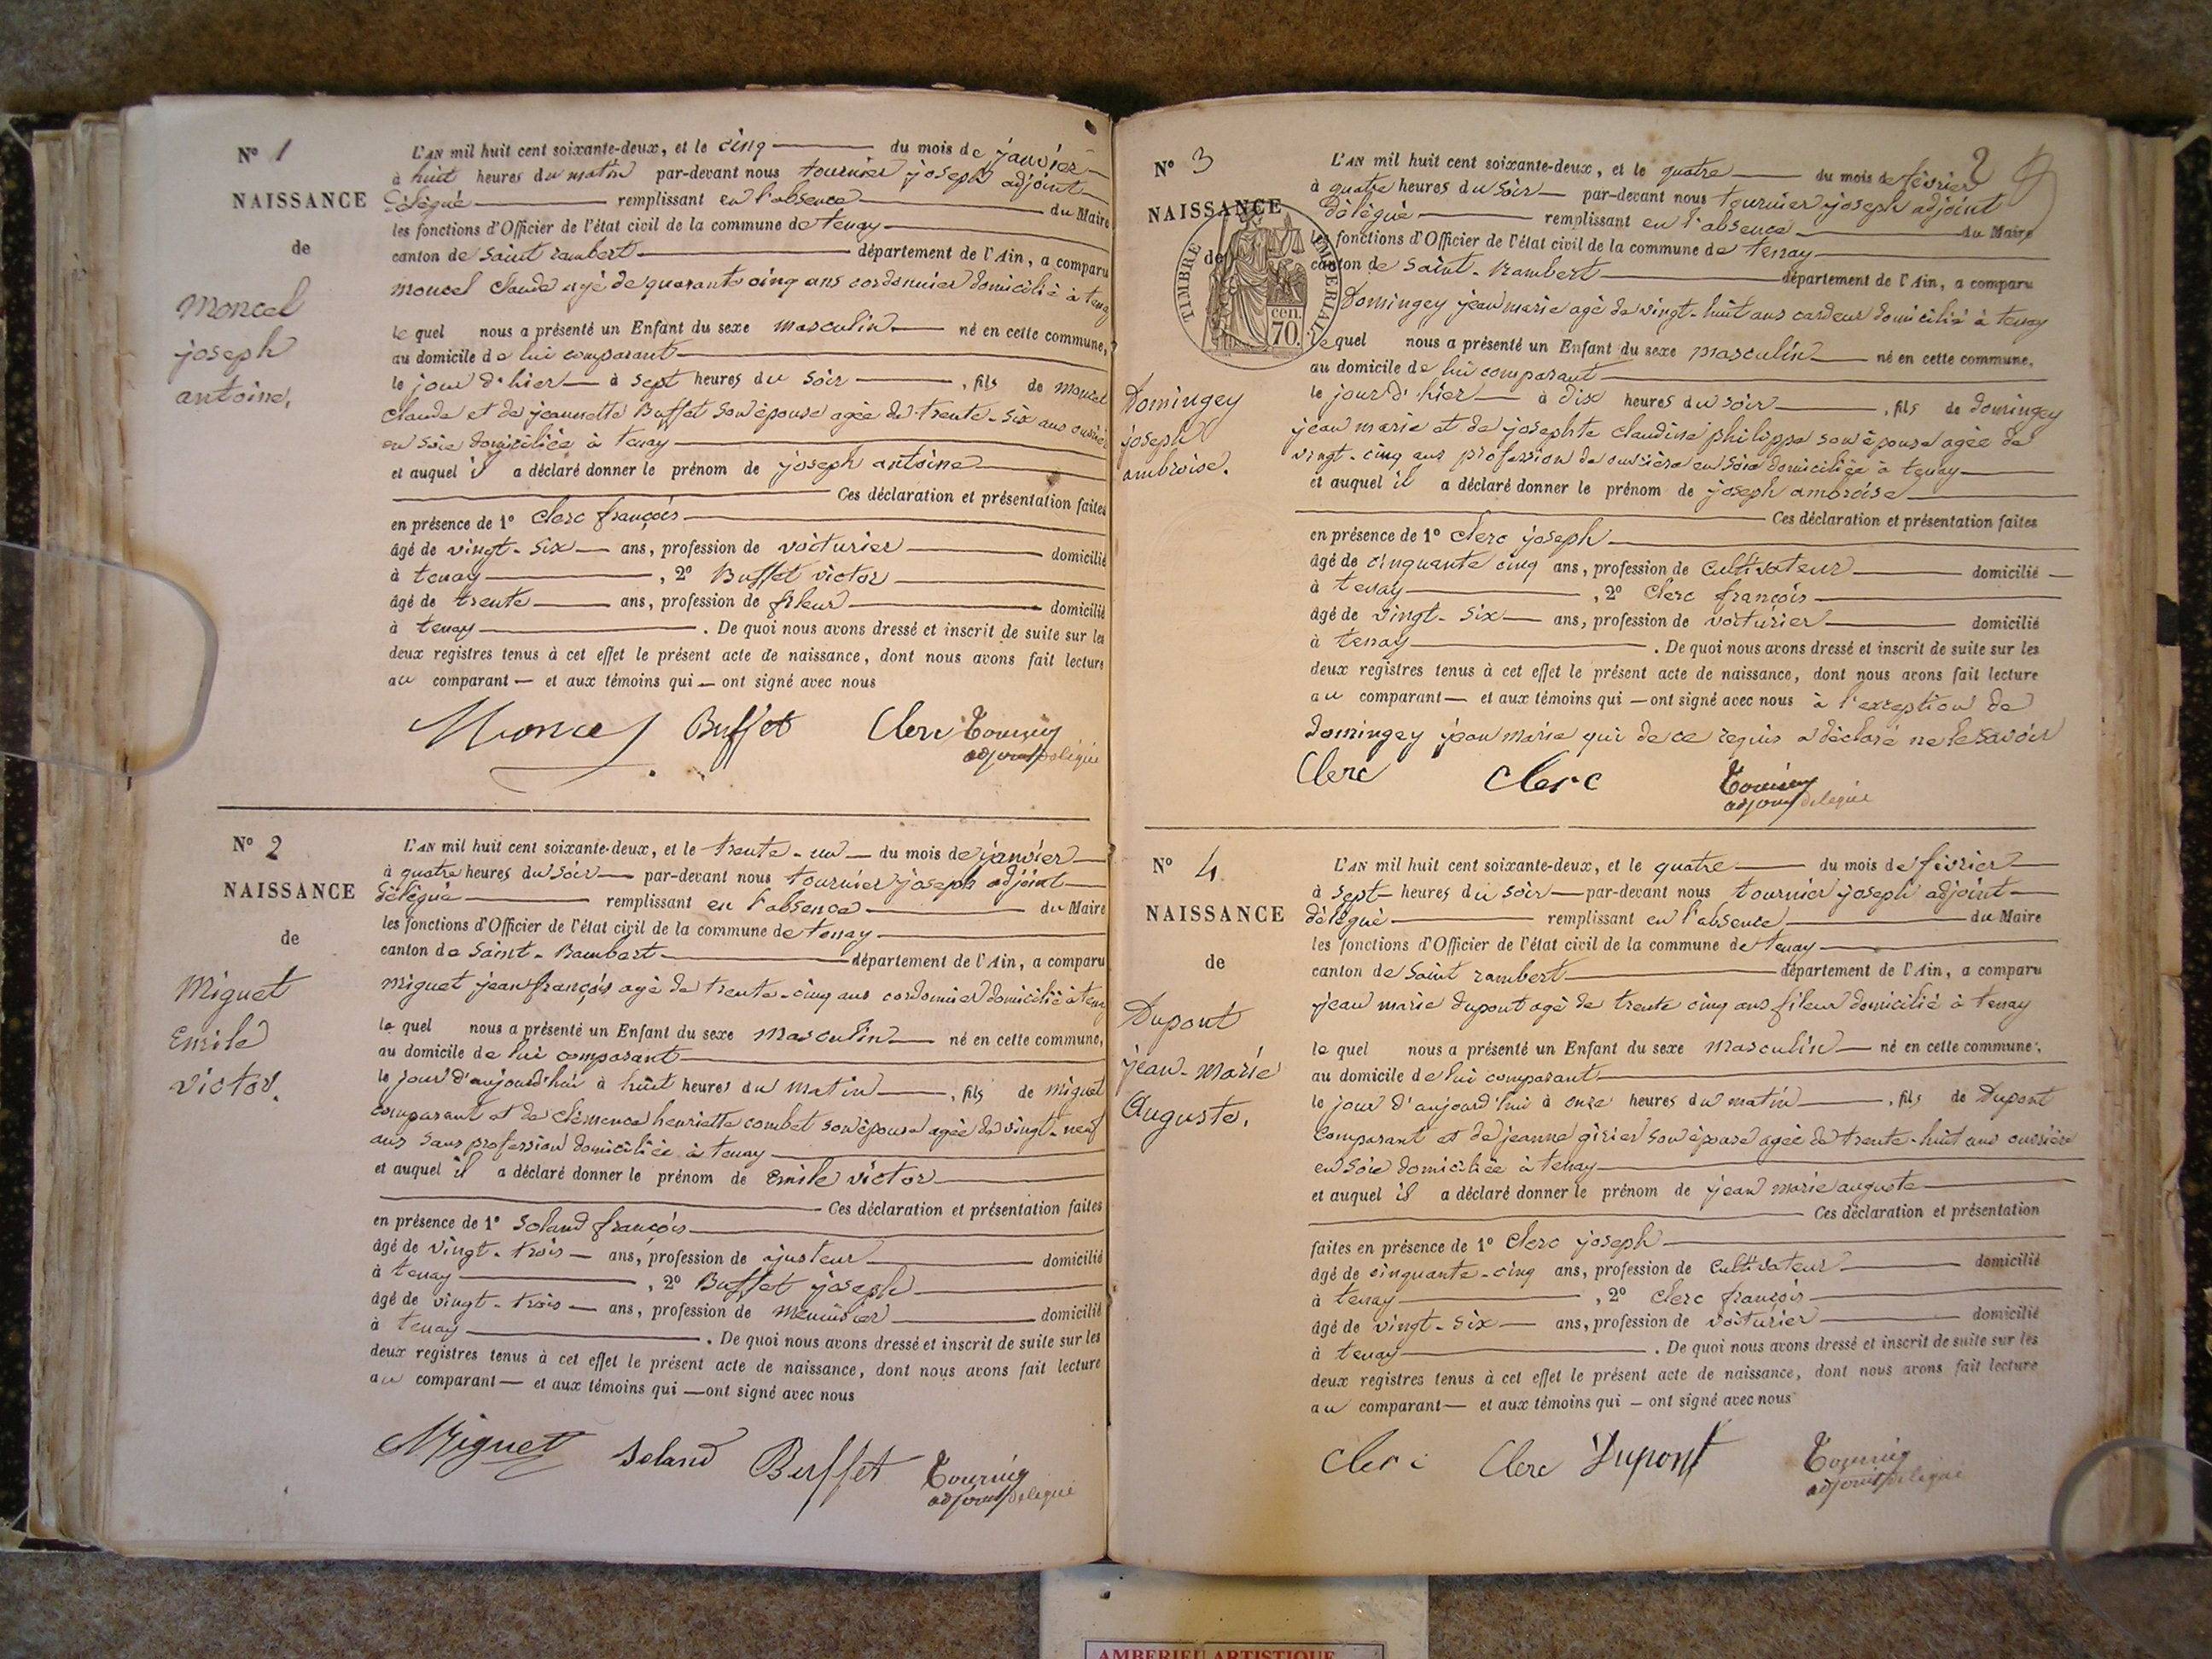 Nº 1
NAISSANCE
de
Moncel
joseph
antoine.
L'AN mil huit cent soixante-deux, et le cinq du mois de janvier
à huit heures du matin par-devant nous tournier joseph adjoint
délégué remplissant en l'absence du Maire
les fonctions d'Officier de l'état civil de la commune de tenay
canton de Saint rambert département de l'Ain, a comparu
moncel claude agé de quarante cinq ans cordonnier domicilié à tenay
le quel nous a présenté un Enfant du sexe masculin né en cette commune,
au domicile de lui comparant
le jour d'hier à sept heures du soir, fils de moncel
claude et de jeannette Buffet son épouse agée de trente-six ans ouvrière
en soie domiciliée à tenay
et auquel il a déclaré donner le prénom de joseph antoine
Ces déclaration et présentation faites
en présence de 1º Clerc françois
âgé de vingt-six ans, profession de voiturier domicilié
à tenay, 2º Buffet victor
âgé de trente ans, profession de fileur domicilié
à tenay. De quoi nous avons dressé et inscrit de suite sur les
deux registres tenus à cet effet le présent acte de naissance, dont nous avons fait lecture
au comparant et aux témoins qui ont signé avec nous
Moncel Buffet Clerc Tournier
adjoint délégué
Nº 2
NAISSANCE
de
Miguet
Emile
victor.
L'AN mil huit cent soixante-deux, et le trente-un du mois de janvier
à quatre heures du soir par-devant nous tournier joseph adjoint
délégué remplissant en l'absence du Maire
les fonctions d'Officier de l'état civil de la commune de tenay
canton de Saint-Rambert département de l'Ain, a comparu
miguet jean françois agé de trente-cinq ans cordonnier domicilié à tenay
le quel nous a présenté un Enfant du sexe masculin né en cette commune,
au domicile de lui comparant
le jour d'aujourd'hui à huit heures du matin, fils de miguet
comparant et de clémence henriette combet son épouse agée de vingt-neuf
ans sans profession domiciliée à tenay
et auquel il a déclaré donner le prénom de Emile victor
Ces déclaration et présentation faites
en présence de 1º Soland françois
âgé de vingt-trois ans, profession de ajusteur domicilié
à tenay, 2º Buffet joseph
âgé de vingt-trois ans, profession de menuisier domicilié
à tenay. De quoi nous avons dressé et inscrit de suite sur les
deux registres tenus à cet effet le présent acte de naissance, dont nous avons fait lecture
au comparant et aux témoins qui ont signé avec nous
Miguet Soland Buffet Tournier
adjoint délégué
2
Nº 3
NAISSANCE
de
TIMBRE IMPERIAL
70 cen.
Domingey
joseph
ambroise.
L'AN mil huit cent soixante-deux, et le quatre du mois de février
à quatre heures du soir par-devant nous tournier joseph adjoint
délégué remplissant en l'absence du Maire
les fonctions d'Officier de l'état civil de la commune de tenay
canton de Saint-Rambert département de l'Ain, a comparu
Domingey jean marie agé de vingt-huit ans cardeur domicilié à tenay
le quel nous a présenté un Enfant du sexe masculin né en cette commune,
au domicile de lui comparant
le jour d'hier à dix heures du soir, fils de domingey
jean marie et de josephte claudine philippe son épouse agée de
vingt-cinq ans profession de ouvrière en soie domiciliée à tenay
et auquel il a déclaré donner le prénom de joseph ambroise
Ces déclaration et présentation faites
en présence de 1º Clerc joseph
âgé de cinquante cinq ans, profession de cultivateur domicilié
à tenay, 2º Clerc françois
âgé de vingt-six ans, profession de voiturier domicilié
à tenay. De quoi nous avons dressé et inscrit de suite sur les
deux registres tenus à cet effet le présent acte de naissance, dont nous avons fait lecture
au comparant et aux témoins qui ont signé avec nous à l'exception de
Domingey jean marie qui de ce requis a déclaré ne le savoir
Clerc Clerc Tournier
adjoint délégué
Nº 4
NAISSANCE
de
Dupont
jean-marie
Auguste.
L'AN mil huit cent soixante-deux, et le quatre du mois de février
à sept heures du soir par-devant nous tournier joseph adjoint
délégué remplissant en l'absence du Maire
les fonctions d'Officier de l'état civil de la commune de tenay
canton de Saint rambert département de l'Ain, a comparu
jean marie dupont agé de trente cinq ans fileur domicilié à tenay
le quel nous a présenté un Enfant du sexe masculin né en cette commune,
au domicile de lui comparant
le jour d'aujourd'hui à onze heures du matin, fils de Dupont
comparant et de jeanne girier son épouse agée de trente-huit ans ouvrière
en soie domiciliée à tenay
et auquel il a déclaré donner le prénom de jean marie auguste
Ces déclaration et présentation
faites en présence de 1º Clerc joseph
âgé de cinquante-cinq ans, profession de cultivateur domicilié
à tenay, 2º Clerc françois
âgé de vingt-six ans, profession de voiturier domicilié
à tenay. De quoi nous avons dressé et inscrit de suite sur les
deux registres tenus à cet effet le présent acte de naissance, dont nous avons fait lecture
au comparant et aux témoins qui ont signé avec nous
Clerc Clerc Dupont Tournier
adjoint délégué
AMBERIEU ARTISTIQUE